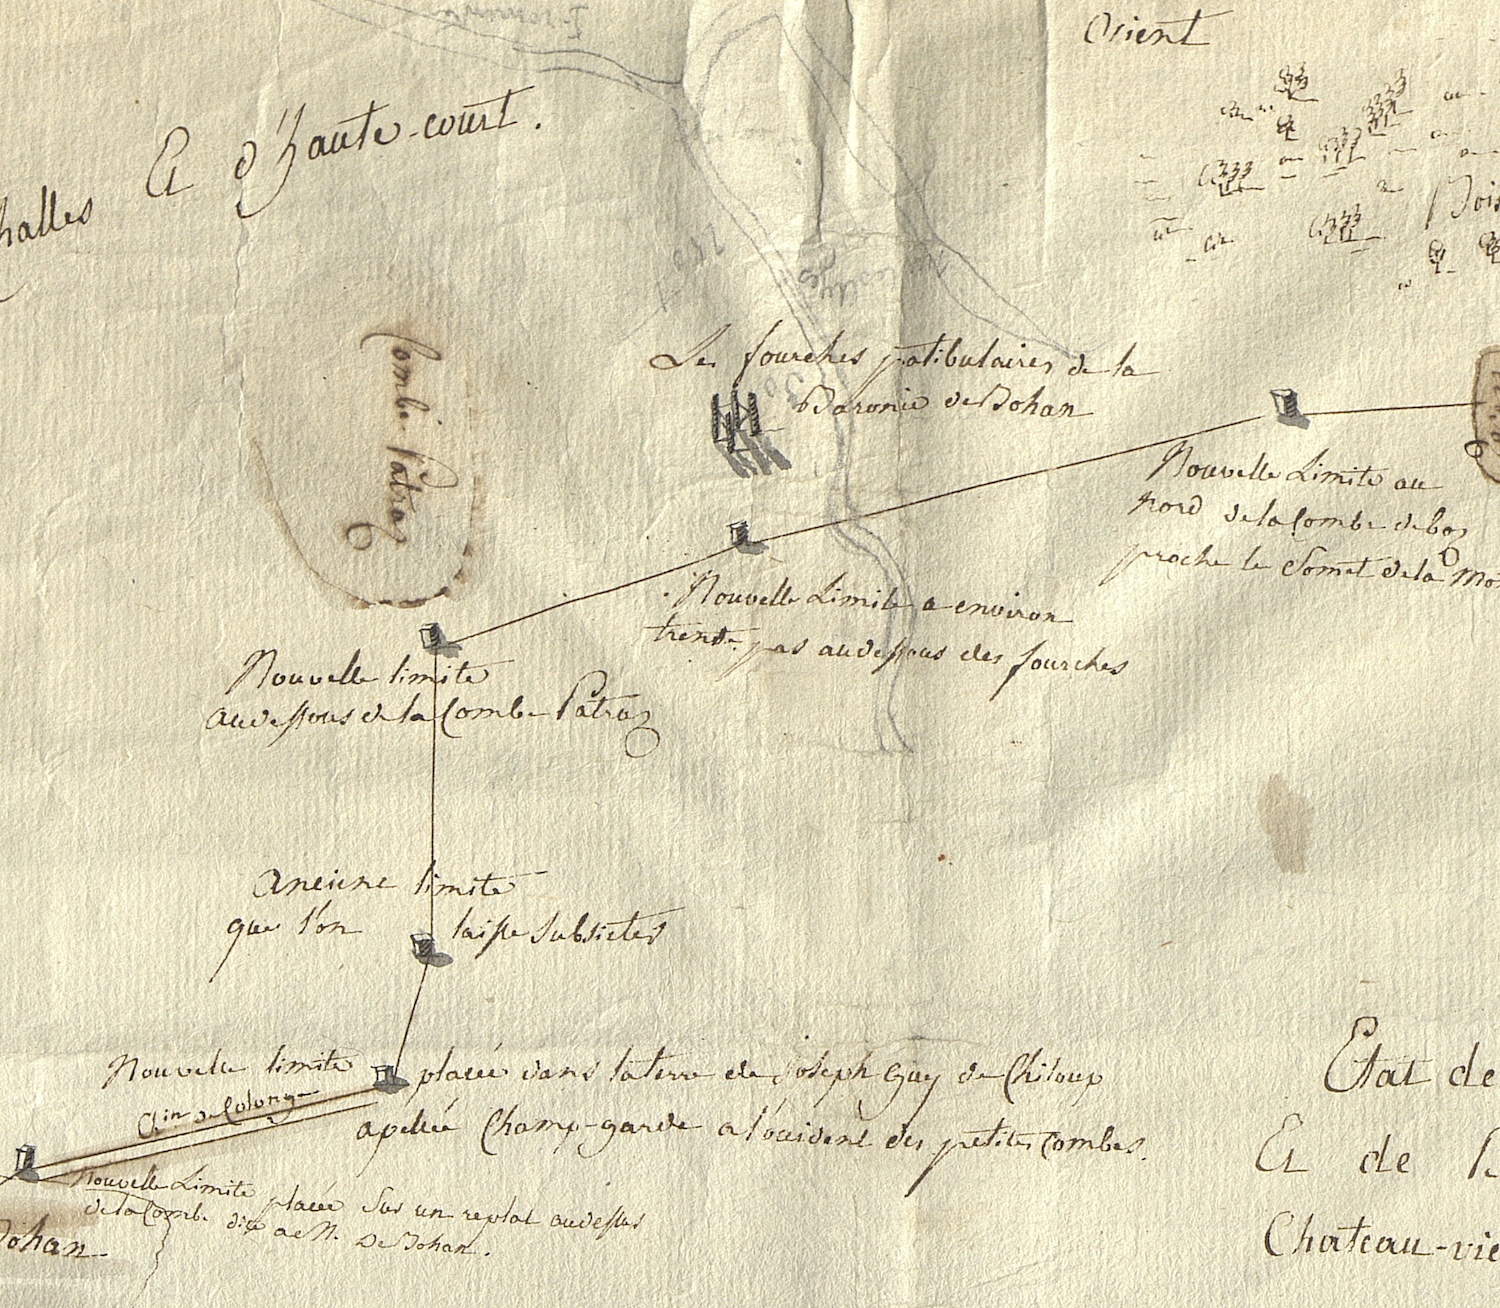 Orient
Et d'haute-court.
halles
Bois
Combe Patraz
Les fourches patibulaires de la
Baronie de Bohan
Nouvelle Limite au
nord de la Combe de boz
proche le Somet de la Mon
Nouvelle Limite a environ
trente pas audessous des fourches
Nouvelle limite
audessous de la Combe Patraz
Anciene limite
que l'on laisse subsister
Nouvelle limite placée dans la terre de Joseph Guy de Chiloup
apellée Champ-garde a l'occident des petites Combes.
Chin de Colonge
Nouvelle Limite placée Sur un replat audessus
de la Combe dite a et M. De Bohan.
Bohan
Etat de
Et de
Chateau-vie